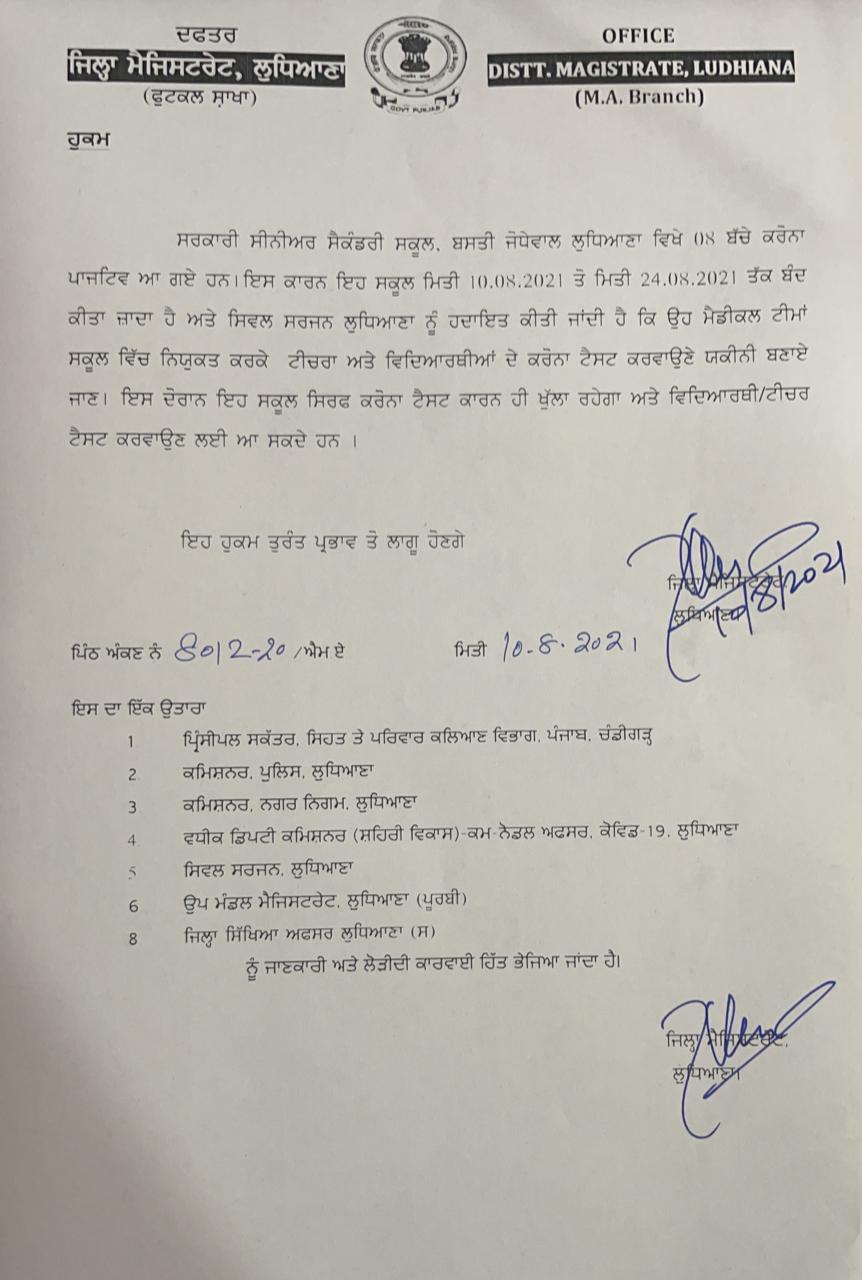 ਦਫਤਰ
ਜਿਲ੍ਹਾ ਮੈਜਿਸਟਰੇਟ, ਲੁਧਿਆਣਾ
(ਫੁਟਕਲ ਸ਼ਾਖਾ)
GOVT PUNJAB
OFFICE
DISTT. MAGISTRATE, LUDHIANA
(M.A. Branch)
ਹੁਕਮ
ਸਰਕਾਰੀ ਸੀਨੀਅਰ ਸੈਕੰਡਰੀ ਸਕੂਲ, ਬਸਤੀ ਜੋਧੇਵਾਲ ਲੁਧਿਆਣਾ ਵਿਖੇ 08 ਬੱਚੇ ਕਰੋਨਾ
ਪਾਜਟਿਵ ਆ ਗਏ ਹਨ।ਇਸ ਕਾਰਨ ਇਹ ਸਕੂਲ ਮਿਤੀ 10.08.2021 ਤੋ ਮਿਤੀ 24.08.2021 ਤੱਕ ਬੰਦ
ਕੀਤਾ ਜ਼ਾਦਾ ਹੈ ਅਤੇ ਸਿਵਲ ਸਰਜਨ ਲੁਧਿਆਣਾ ਨੂੰ ਹਦਾਇਤ ਕੀਤੀ ਜਾਂਦੀ ਹੈ ਕਿ ਉਹ ਮੈਡੀਕਲ ਟੀਮਾਂ
ਸਕੂਲ ਵਿੱਚ ਨਿਯੁਕਤ ਕਰਕੇ ਟੀਚਰਾ ਅਤੇ ਵਿਦਿਆਰਥੀਆਂ ਦੇ ਕਰੋਨਾ ਟੈਸਟ ਕਰਵਾਉਣੇ ਯਕੀਨੀ ਬਣਾਏ
ਜਾਣ। ਇਸ ਦੋਰਾਨ ਇਹ ਸਕੂਲ ਸਿਰਫ ਕਰੋਨਾ ਟੈਸਟ ਕਾਰਨ ਹੀ ਖੁੱਲਾ ਰਹੇਗਾ ਅਤੇ ਵਿਦਿਆਰਥੀ/ਟੀਚਰ
ਟੈਸਟ ਕਰਵਾਉਣ ਲਈ ਆ ਸਕਦੇ ਹਨ ।
ਇਹ ਹੁਕਮ ਤੁਰੰਤ ਪ੍ਰਭਾਵ ਤੋ ਲਾਗੂ ਹੋਣਗੇ
ਜਿਲ੍ਹਾ ਮੈਜਿਸਟਰੇਟ,
ਲੁਧਿਆਣਾ 10/8/2021
ਪਿੰਠ ਅੰਕਣ ਨੰ 8012-20 /ਐਮ ਏ ਮਿਤੀ 10-8-2021
ਇਸ ਦਾ ਇੱਕ ਉਤਾਰਾ
1 ਪ੍ਰਿੰਸੀਪਲ ਸਕੱਤਰ, ਸਿਹਤ ਤੇ ਪਰਿਵਾਰ ਕਲਿਆਣ ਵਿਭਾਗ, ਪੰਜਾਬ, ਚੰਡੀਗੜ੍ਹ
2 ਕਮਿਸ਼ਨਰ, ਪੁਲਿਸ, ਲੁਧਿਆਣਾ
3 ਕਮਿਸ਼ਨਰ, ਨਗਰ ਨਿਗਮ, ਲੁਧਿਆਣਾ
4 ਵਧੀਕ ਡਿਪਟੀ ਕਮਿਸ਼ਨਰ (ਸ਼ਹਿਰੀ ਵਿਕਾਸ)-ਕਮ-ਨੋਡਲ ਅਫਸਰ, ਕੋਵਿਡ-19, ਲੁਧਿਆਣਾ
5 ਸਿਵਲ ਸਰਜਨ, ਲੁਧਿਆਣਾ
6 ਉਪ ਮੰਡਲ ਮੈਜਿਸਟਰੇਟ, ਲੁਧਿਆਣਾ (ਪੂਰਬੀ)
8 ਜਿਲ੍ਹਾ ਸਿੱਖਿਆ ਅਫਸਰ ਲੁਧਿਆਣਾ (ਸ)
ਨੂੰ ਜਾਣਕਾਰੀ ਅਤੇ ਲੋੜੀਦੀ ਕਾਰਵਾਈ ਹਿੱਤ ਭੇਜਿਆ ਜਾਂਦਾ ਹੈ।
ਜਿਲ੍ਹਾ ਮੈਜਿਸਟਰੇਟ,
ਲੁਧਿਆਣਾ।